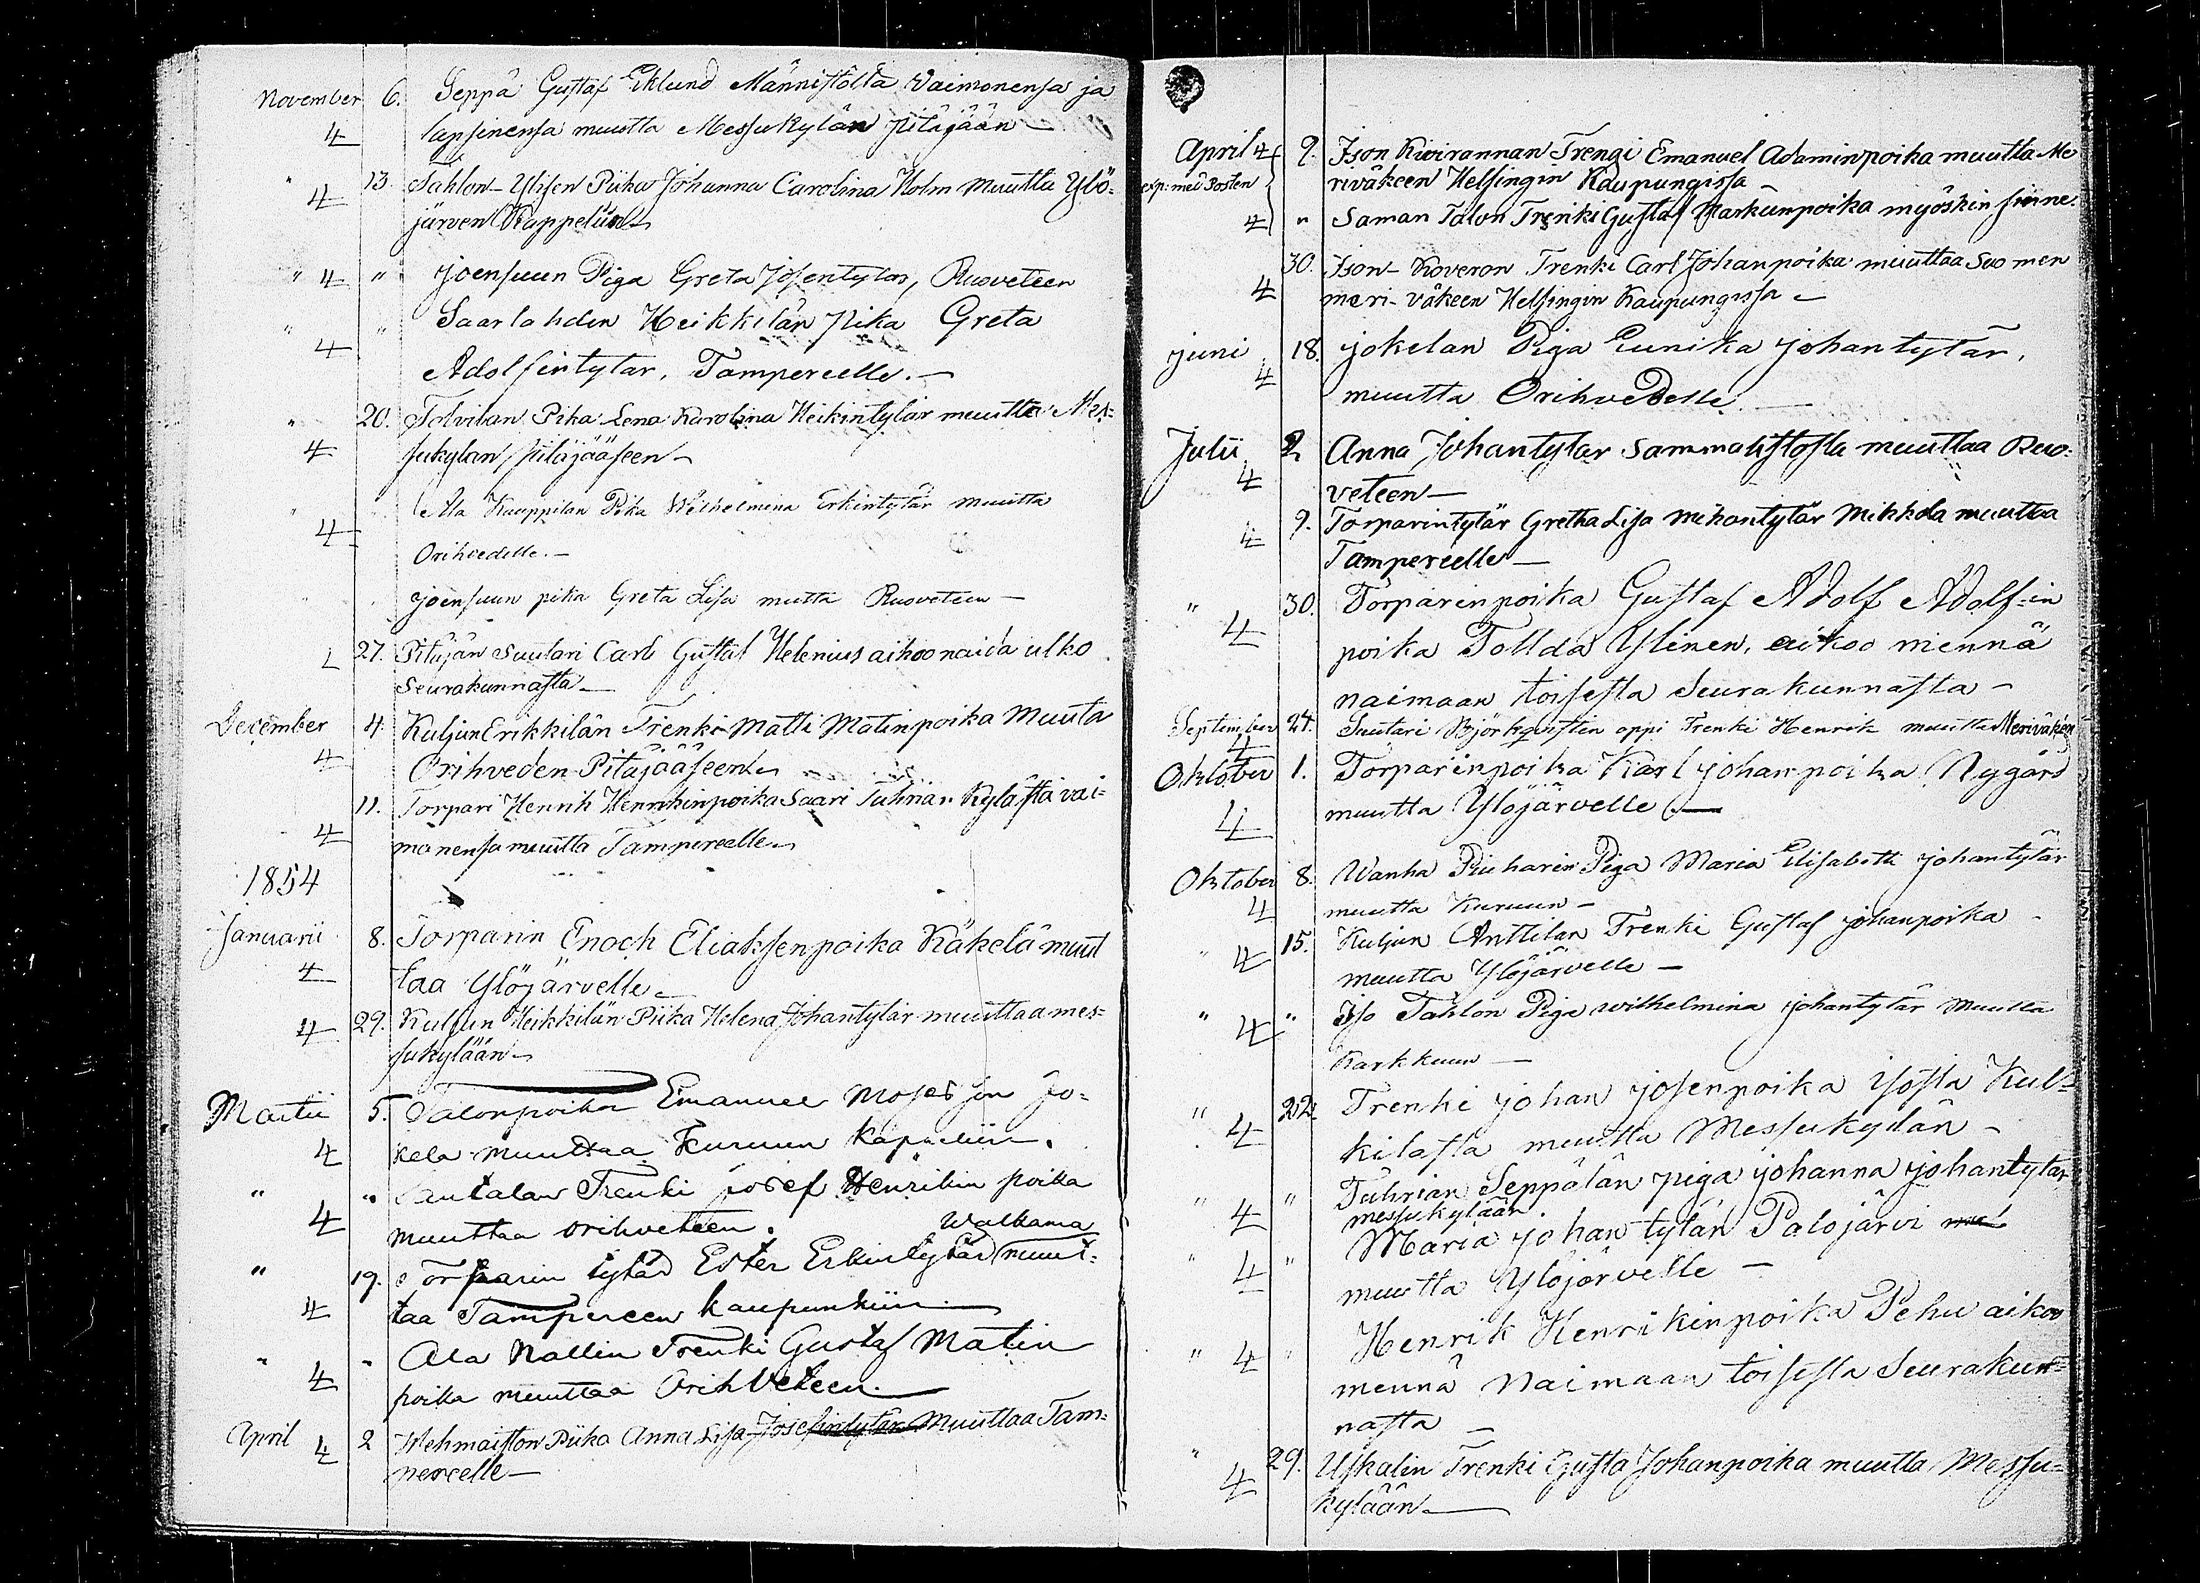 November 6. Seppä Gustaf Eklund Männistöltä Vaimonensa ja
4 lapsinensa muutta Messukylän pitäjään —
" 4 13 Tahlon-Ylisen Piika Johanna Carolina Holm muutta Ylö=
järven Kappeliin —
" 4 " Joensuun Piga Greta Josentytar, Ruoveteen
" 4 " Saarlahden Heikkilän pika Greta
Adolfintytar, Tampereelle. —
" 20. Tolvilan Pika Lena Karolina Heikintytär muutta Mes=
4 sukylan pitäjääseen —
" 4 Ala Kauppilan Pika Wilhelmina Erkintytär muutta
Orihvedelle. —
Joensuun pika Greta Lisa mutta Ruoveteen —
27. Pitäjän Suutari Carl Gustaf Helenius aikoo naida ulko
Seurakunnasta —
December 4. Kuljun Erikkilän Trenki Matti Matinpoika Muuta
4 Orihveden Pitäjääseen —
11. Torpari Henrik Henrikinpoika Saari Tuhrian Kylästä vai=
4 monensa muutta Tampereelle —
1854
Januarii 8. Torparin Enoch Eliaksenpoika Käkelä muut
4 taa Ylöjärvelle —
4 29. Kuljun Heikkilän Piika Helena Johantytär muuttaa mes=
sukylään —
Martii 5. Talonpoika Emanuel Moses son Jo=
4 kela muuttaa Kuruun Kapeliin.
" 4 " Lautalan Trenki Josef Henrikin poika
muuttaa Orihveteen. Walkama
" 19. Torparin tytär Ester Erkintytär muut=
4 taa Tampereen kaupunkiin —
" 4 " Ala Nallin Trenki Gustaf Matin
poika muuttaa Orihveteen. —
April 4 2 Mehmaiston Piika Anna Lisa Josefintytär Muuttaa Tam=
pereelle —
April 4 9. Ison Kivirannan Trengi Emanuel Adaminpoika muutta Me
exp: med Posten riväkeen Helsingin Kaupungissa —
4 " Saman Talon Trenki Gustaf Markunpoika myöskin sinne.
30. Ison-Koveron Trenki Carl Johanpoika muuttaa Suomen
4 meri-väkeen Helsingin Kaupungissa —
Juni 18. Jokelan Piga Eunika Johantytär,
4 muutta Orihvedelle —
Julii 2 Anna Johantytar Sammalistosta muuttaa Ruo=
4 veteen —
4 9. Torparintytär Gretha Lisa Mikantytär Mikkola muuttaa
Tampereelle —
" 30. Torparinpoika Gustaf Adolf Adolf=in
4 poika Tollda Ylinen, aikoo mennä
naimaan toisesta Seurakunnasta —
September 24. Suutari Björkqvistin oppi Trenki Henrik muutta Meriväkeen
4
Oktober 1. Torparinpoika Karl Johanpoika Nygård
4 muutta Ylöjärvelle —
Oktober 8. Wanha Riuharin Piga Maria Elisabetti Johantytär
4 muutta Kuruun —
" 4 15. Kuljun Anttilan Trenki Gustaf Johanpoika
muutta Ylöjärvelle —
" 4 " Iso Tahlon Piga Wilhelmina Johantytär Muutta
Karkkuun —
" 4 22. Trenki Johan Josenpoika Isosta Kul=
kilasta muutta Messukylän —
" 4 " Tuhrian Seppälän piga Johanna Johantytar
messukylään.
" 4 " Maria Johantytär Palojärvi
muutta Ylöjärvelle —
" 4 " Henrik Henrikinpoika Pehu aikoo
mennä Naimaan toisesta Seurakun=
nasta —
" 4 29. Uskalin Trenki Gusta Johanpoika muutta Messu=
kylään —